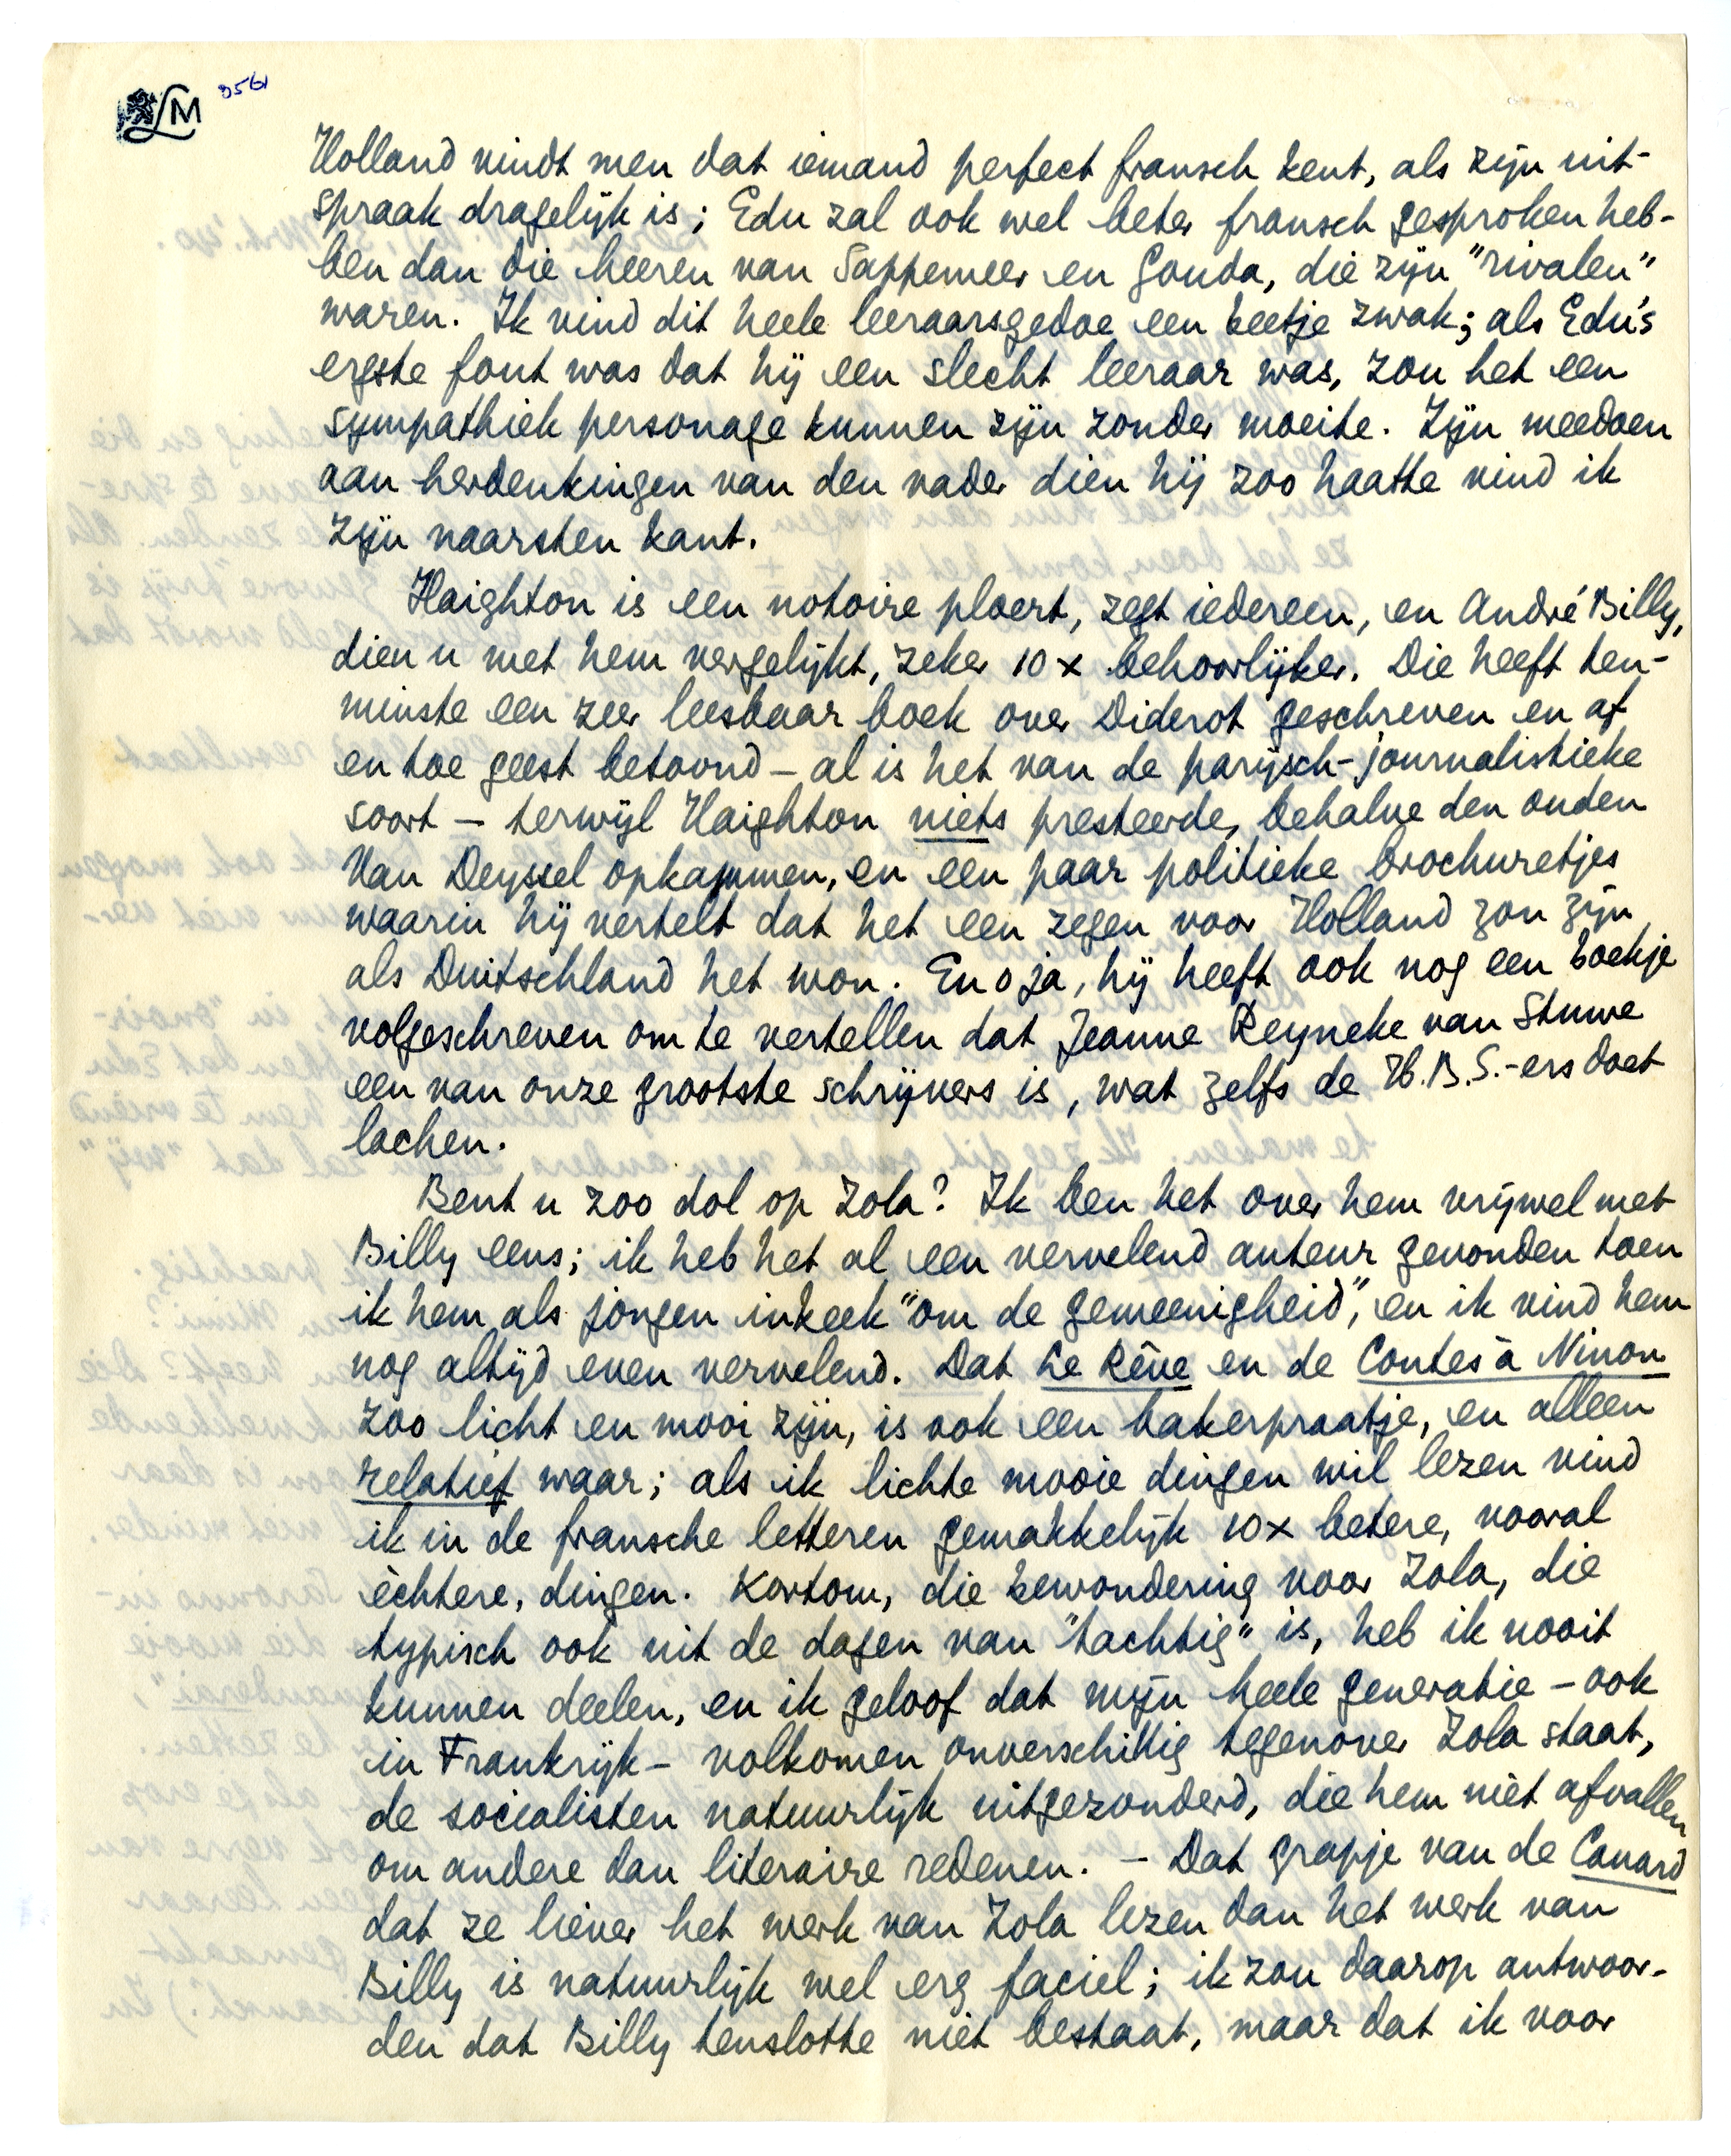 LM 3561
Holland vindt men dat iemand perfect fransch kent, als zijn uit-
spraak dragelijk is; Edu zal ook wel beter fransch gesproken heb-
ben dan die heeren van Sappemeer en Gouda, die zijn "rivalen"
waren. Ik vind dit heele leeraarsgedoe een beetje zwak; als Edu's
ergste fout was dat hij een slecht leeraar was, zou het een
sympathiek personage kunnen zijn zonder moeite. Zijn meedoen
aan herdenkingen van den vader dien hij zoo haatte vind ik
zijn naarsten kant.
Haighton is een notoire ploert, zegt iedereen, en André Billy,
dien u met hem vergelijkt, zeker 10 x behoorlijker. Die heeft ten-
minste een zeer leesbaar boek over Diderot geschreven en af
en toe geest betoond – al is het van de parijsch-journalistieke
soort – terwijl Haighton niets presteerde, behalve den ouden
Van Deyssel opkammen, en een paar politieke brochuretjes
waarin hij vertelt dat het een zegen voor Holland zou zijn
als Duitschland het won. En o ja, hij heeft ook nog een boekje
volgeschreven om te vertellen dat Jeanne Reyneke van Stuwe
een van onze grootste schrijvers is, wat zelfs de H.B.S.-ers doet
lachen.
Bent u zoo dol op Zola? Ik ben het over hem vrijwel met
Billy eens; ik heb het al een vervelend auteur gevonden toen
ik hem als jongen inkeek "om de gemeenigheid", en ik vind hem
nog altijd even vervelend. Dat Le Rêve en de Contes à Ninon
zoo licht en mooi zijn, is ook een bakerpraatje, en alleen
relatief waar; als ik lichte mooie dingen wil lezen vind
ik in de fransche letteren gemakkelijk 10x betere, vooral
èchtere, dingen. Kortom, die bewondering voor Zola, die
typisch ook uit de dagen van "tachtig" is, heb ik nooit
kunnen deelen, en ik geloof dat mijn heele generatie – ook
in Frankrijk – volkomen onverschillig tegenover Zola staat,
de socialisten natuurlijk uitgezonderd, die hem niet afvallen
om andere dan literaire redenen. – Dat grapje van de Canard
dat ze liever het werk van Zola lezen dan het werk van
Billy is natuurlijk wel erg faciel; ik zou daarop antwoor-
den dat Billy tenslotte niet bestaat, maar dat ik voor